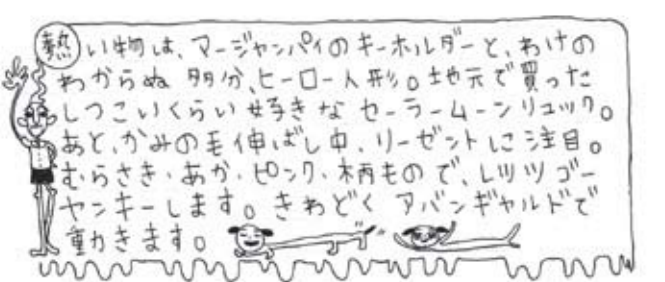 熱い物は、マージャンパイのキーホルダーと、わけの
わからぬ 多分、ヒーロー人形。地元で買った
しつこいくらい好きな セーラームーンリュック。
あと、かみの毛伸ばし中、リーゼントに注目。
むらさき・あか・ピンク・柄もので、レッツゴー
ヤンキーします。きわどく アバンギャルドで
動きます。